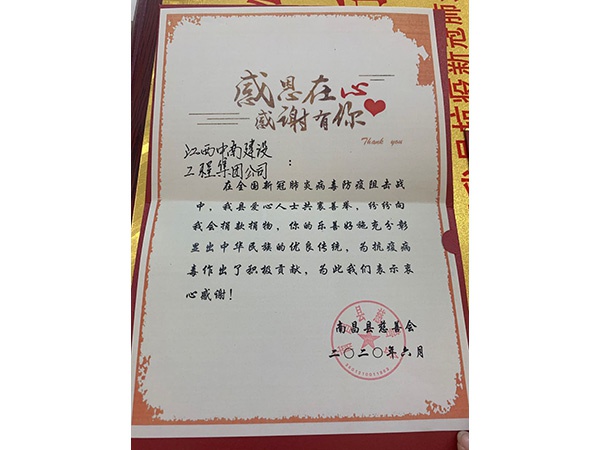 感恩在心
感谢有你
Thank you
江西中南建设
工程集团公司:
在全国新冠肺炎病毒防疫阻击战
中，我县爱心人士共襄善举，纷纷向
我会捐款捐物，你的乐善好施充分彰
显出中华民族的优良传统，为抗疫病
毒作出了积极贡献，为此我们表示衷
心感谢！
南昌县慈善会
二〇二〇年六月